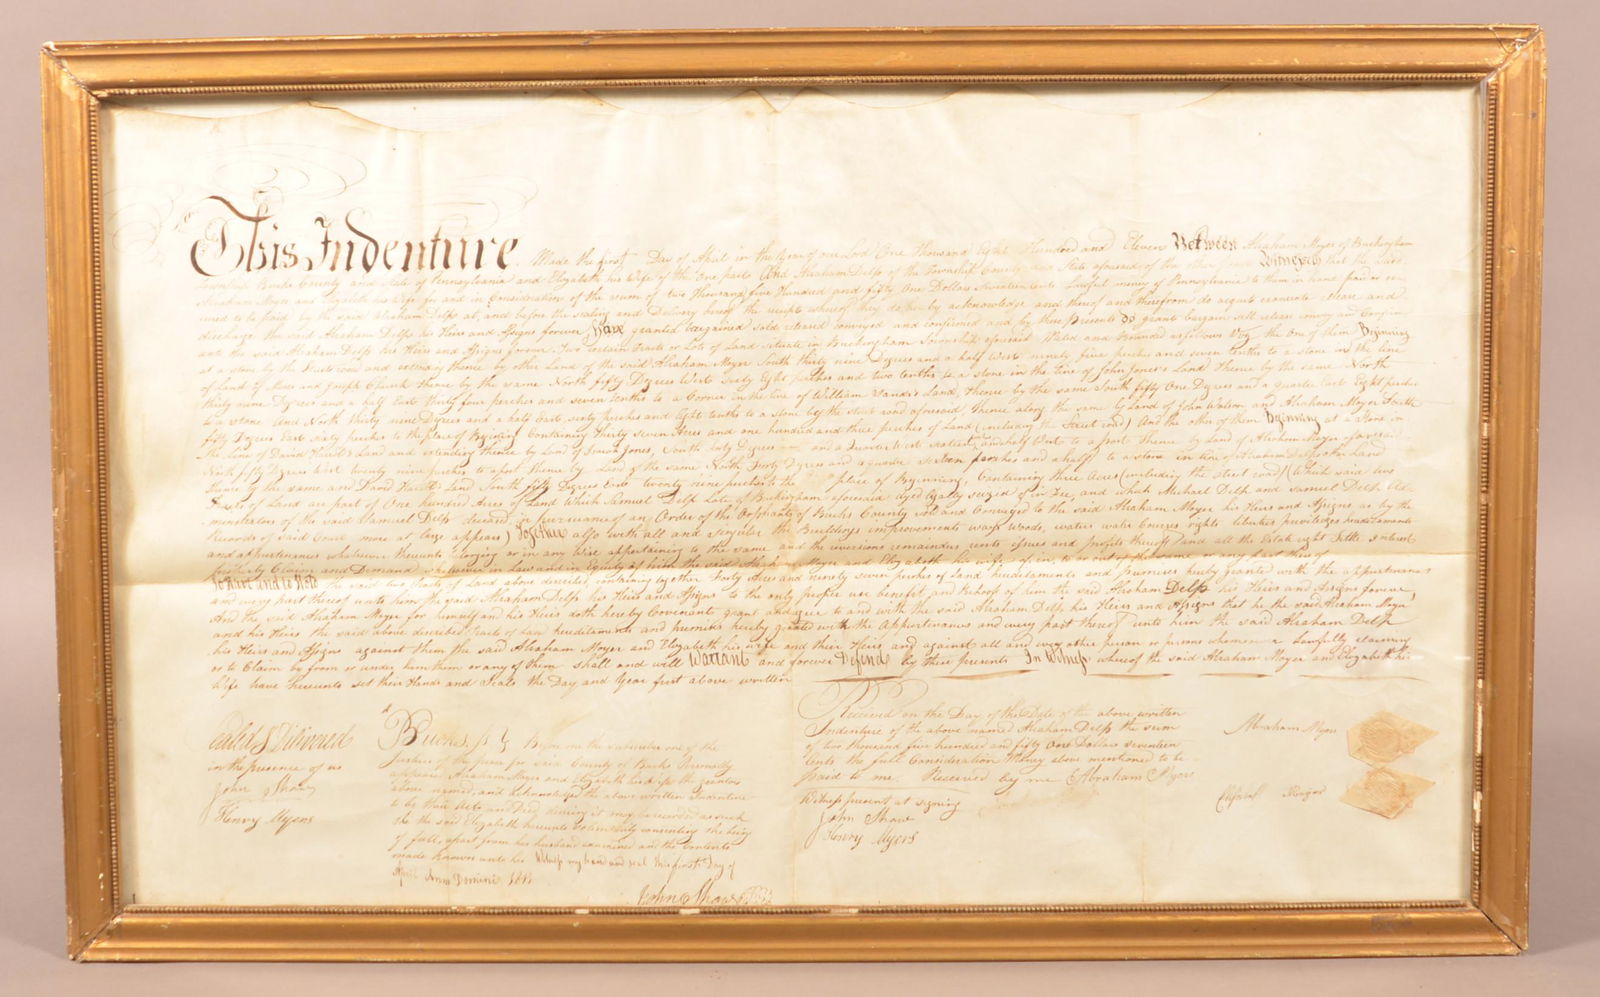 This Indenture Made the first Day of April in the Year of our Lord One Thousand Eight Hundred and Eleven Between Abraham Moyer of Buckingham
Township Bucks County and State of Pennsylvania and Elizabeth his Wife of the one part And Abraham Delp of the Township County and State aforesaid of the other part Witnesseth that the said
Abraham Moyer and Elizabeth his Wife for and in Consideration of the sum of two Thousand five Hundred and fifty One Dollars Seventeen Cents Lawful money of Pennsylvania to them in hand paid or se-
cured to be paid by the said Abraham Delp at, and before the sealing and Delivery hereof the receipt whereof they do hereby acknowledge and thereof and therefrom do acquit exonerate release and
discharge the said Abraham Delp his Heirs and Assigns forever Have granted bargained sold released conveyed and confirmed and by these Presents do grant bargain sell release convey and Confirm
unto the said Abraham Delp his Heirs and Assigns forever Two certain Tracts or Lots of Land situate in Buckingham Township aforesaid Butted and Bounded as follows Viz. the One of them Beginning
at a stone by the Street road and extending thence by other Land of the said Abraham Moyer South thirty nine Degrees and a half West ninety five perches and seven tenths to a stone in the line
of Land of Moses and Joseph Church thence by the same North fifty Degrees West Sixty Eight perches and two tenths to a stone in the line of John Jones's Land Thence by the same North
thirty nine Degrees and a half East Thirty four perches and seven tenths to a Corner in the line of William Land, thence by the same South fifty One Degrees and a quarter East Eight perches
to a stone And North thirty nine Degrees and a half East sixty perches and Eight tenths to a stone by the street road aforesaid, thence along the same by Land of John Watson and Abraham Moyer South
fifty Degrees East sixty perches to the place of Beginning Containing Thirty seven Acres and one hundred and three perches of Land (including the Street road) And the other of them Beginning at a Stone in
the line of David Land and extending thence by Land of Jones, South forty Degrees and a Quarter West sixteen and half to a post Thence by Land of Abraham Moyer aforesaid
North fifty Degrees West twenty nine perches to a post thence by Land of the same North Forty Degrees and a quarter perches and a half to a stone in line of Abraham Delp's other Land
thence by the same and David Land South fifty Degrees East twenty nine perches to the place of Beginning, Containing three Acres (including the street road) (Which said two
Tracts of Land are part of One hundred Acres of Land Which Samuel Delp Late of Buckingham aforesaid dyed legally seized of in Fee, and which Michael Delp and Samuel Delp Ad-
ministrators of the said Samuel Delp deceased in pursuance of an Order of the Orphans Court of Bucks County Sold and Conveyed to the said Abraham Moyer his Heirs and Assigns as by the
Records of said Court more at large appears) Together also with all and singular the Buildings improvements ways woods, waters water Courses rights liberties priviledges hereditaments
and appurtenances whatsoever thereunto belonging or in any Wise appertaining to the same and the reversions remainders rents issues and profits thereof And all the Estate right Title interest
property Claim and Demand whatsoever in Law and in Equity of him the said Abraham Moyer and Elizabeth his wife of in, to or out of the same or any part thereof
To Have and to Hold the said two tracts of Land above described, containing together Forty Acres and ninety seven perches of Land hereditaments and premises hereby granted with the appurtenances
and every part thereof unto him the said Abraham Delp his Heirs and Assigns to the only proper use benefit and behoof of him the said Abraham Delp his Heirs and Assigns forever,
And the said Abraham Moyer for himself and his Heirs doth hereby Covenant grant and agree to and with the said Abraham Delp his Heirs and Assigns that he the said Abraham Moyer
and his Heirs the said above described Tracts of Land hereditaments and premises hereby granted with the Appurtenances and every part thereof unto him the said Abraham Delp
his Heirs and Assigns against them the said Abraham Moyer and Elizabeth his wife and their Heirs and against all and every other person or persons whomsoever Lawfully claiming
or to Claim by from or under him them or any of them Shall and will Warrant and forever Defend by these presents In Witness whereof the said Abraham Moyer and Elizabeth his
Wife have hereunto set their Hands and Seals the Day and Year first above written
Sealed & Delivered
in the presence of us
John Shaw
Henry Myers
Bucks ss Before me the subscriber one of the
Justices of the peace for said County of Bucks Personally
appeared Abraham Moyer and Elizabeth his wife the grantors
above named, and acknowledged the above written Indenture
to be their Act and Deed, desiring it may be recorded as such
She the said Elizabeth hereunto voluntarily consenting She being
of full, apart from her husband examined and the Contents
made known unto her Witness my hand and seal this first Day of
April Anno Domini 1811
John Shaw
Received on the Day of the Date of the above written
Indenture of the above named Abraham Delp the sum
of two thousand five hundred and fifty One Dollars seventeen
Cents the full Consideration Money above mentioned to be
paid to me. Received by me Abraham Myers
Witness present at signing
John Shaw
Henry Myers
Abraham Myers